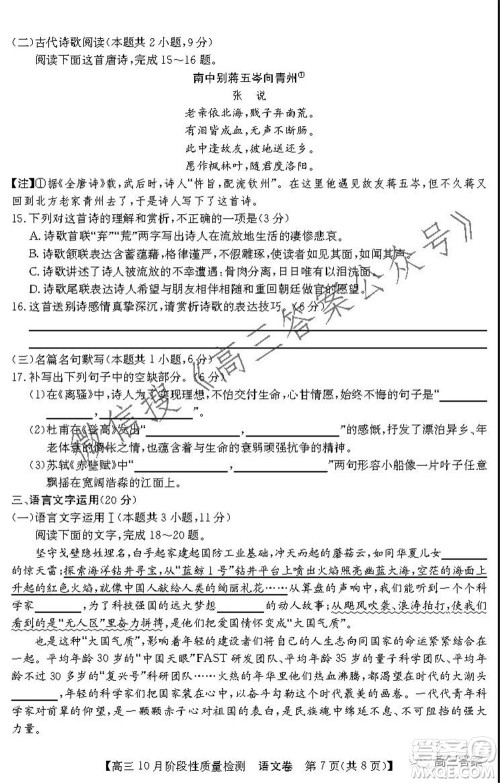 (二)古代诗歌阅读(本题共2小题,9分)
阅读下面这首唐诗,完成15~16题。
南中别蒋五岑向青州①
张 说
老亲依北海,贱子弃南荒。
有泪皆成血,无声不断肠。
此中逢故友,彼地送还乡。
愿作枫林叶,随君度洛阳。
【注】①据《全唐诗》载,武后时,诗人“忤旨,配流钦州”。在这里他遇见故友蒋五岑,但不久蒋又
回到北方老家青州去,于是诗人写下了这首诗。
15.下列对这首诗的理解和赏析,不正确的一项是(3分)
A.诗歌首联“弃”“荒”两字写出诗人在流放地生活的凄惨悲哀。
B.诗歌颔联表达含蓄蕴藉,格律谨严,不同凡响,有一唱三叹之妙。
C.诗歌讲述了诗人被流放的不幸遭遇:骨肉分离,日日以泪洗面。
D.诗歌尾联表达诗人希望与朋友相伴相随,并回到朝廷做官的愿望。
16.这首送别诗感情真挚深沉,请赏析诗歌的表达技巧。(6分)
(三)名篇名句默写(本题共1小题,6分)
17.补写出下列句子中的空缺部分。(6分)
(1)在《离骚》中,诗人为了实现理想,不怕交付生命,心甘情愿,始终不悔的句子是“
,”。
(2)杜甫在《登高》中,发出“,”的感慨,抒发了漂泊异乡、年
老体衰的惆怅,但不乏与生命的衰弱顽强抗争的精神。
(3)苏轼《赤壁赋》中“,”两句形容小船像一片苇叶任意
飘摇在宽阔浩淼的江面上。
三、语言文字运用(20分)
(一)语言文字运用Ⅰ(本题共3小题,11分)
阅读下面的文字,完成18~20题。
坚守戈壁隐姓埋名,白手起家建起国防工业基础,冲天而起的蘑菇云,如同华夏儿女
的惊天雷;探索海洋钻井寻宝,从“蓝鲸1号”钻井平台上喷出火焰照亮幽蓝大海,空茫的海面上
升起的红色火焰,就像中国人献给人类的绚丽礼花……从算盘的声响中,我们看到的是一个个科
学家、为实现强国的远大梦想的动人故事;从飓风吹袭、浪涛拍打中,我们
看到的是“无人区”里奋力拼搏、勇往直前、让梦照进现实的“大国气质”。
也是这种“大国气质”,影响着年轻的建设者们将自己的人生志向同国家的命运紧紧结合在一
起。平均年龄30多岁的“中国天眼”FAST研发团队、平均年龄35岁的量子科学团队、平均年
龄不过30多岁的“复兴号”科研团队……火热的年华里他们一心扑在关乎国家命运的大湖头
上,的精神催促着他们在各自的领域奋勇前进、不断创新。可以说,一代代青年科
学家对前辈的使命担当,是民族魂魄与生命血脉的延续,爆发出创新创造的强大生命
力量。
【高三10月阶段性质量检测 语文卷 第7页(共8页)】
微信搜《高三答案公众号》
高三答案